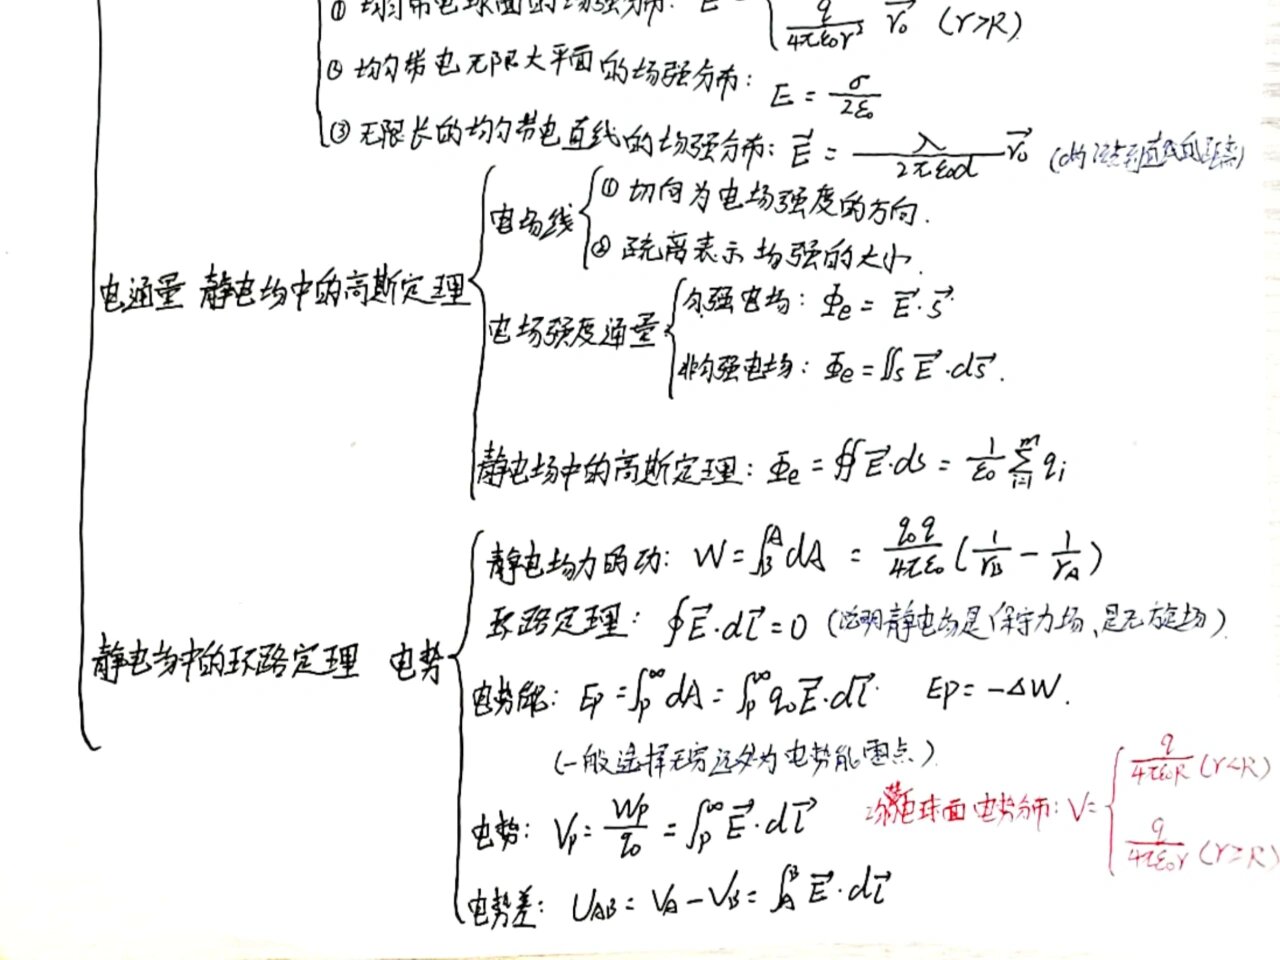 ① 均匀带电球面的场强分布: E = { q/4πε₀r² r₀ (r>R)
② 均匀带电无限大平面的场强分布: E = σ/2ε₀
③ 无限长的均匀带电直线的场强分布: E⃗ = λ/2πε₀d r⃗₀ (d为
电通量 静电场中的高斯定理
电场线
① 切向为电场强度的方向.
② 疏离表示场强的大小.
电场强度通量
匀强电场: Φe = E⃗·s⃗
非匀强电场: Φe = ∬s E⃗·ds⃗.
静电场中的高斯定理: Φe = ∯ E⃗·ds = 1/ε₀ Σ(i=1→m) qi
静电场中的环路定理 电势
静电场力的功: W = ∫_B^A dA = q₀q/4πε₀ (1/r_B − 1/r_A)
环路定理: ∮E⃗·dl⃗ = 0 (说明静电场是保守力场、是无旋场)
电势能: Ep = ∫_p^∞ dA = ∫_p^∞ q₀E⃗·dl⃗ Ep = −ΔW.
(一般选择无穷远处为电势能零点)
电势: Vp = Wp/q₀ = ∫_p^∞ E⃗·dl⃗
球面电势分布: V = { q/4πε₀R (r<R)
q/4πε₀r (r≥R)
电势差: U_AB = V_A − V_B = ∫_A^B E⃗·dl⃗